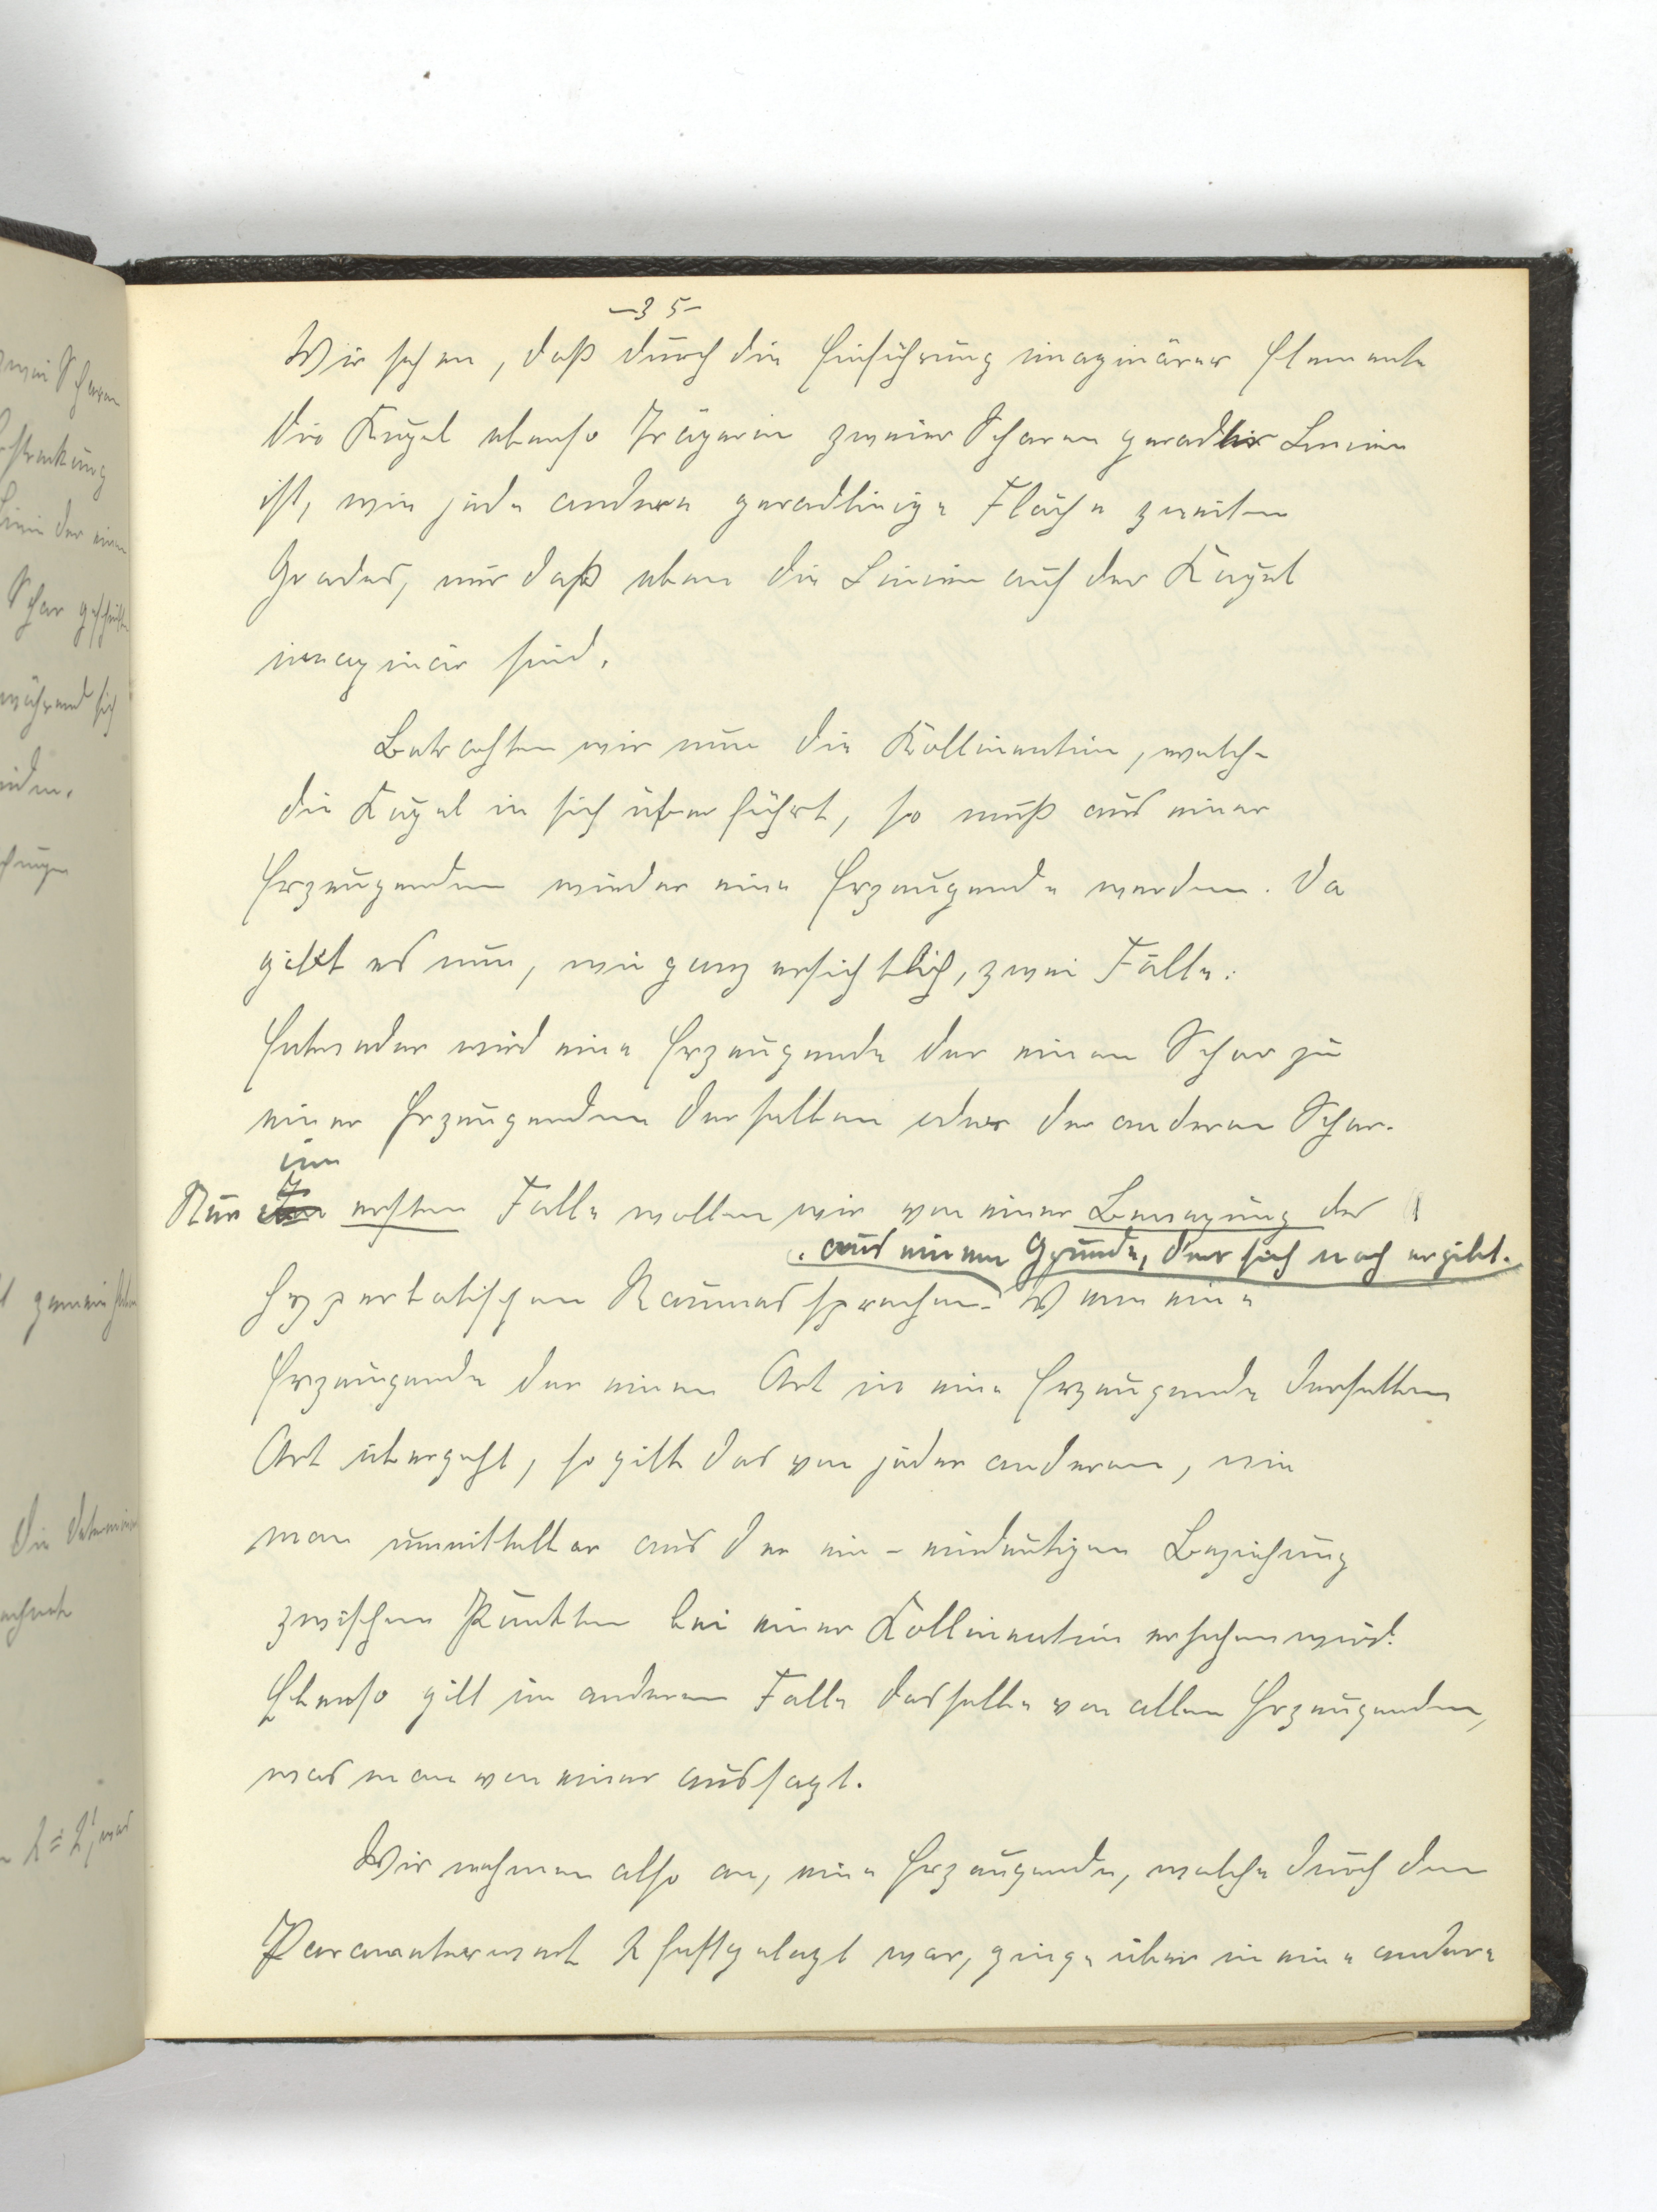 -35-
Wir sehen, daß durch die Einführung imaginärer Elemente
die Kugel ebenso Trägerin zweier Scharen gerader Linien
ist, wie jede andere geradlinige Fläche zweiten
Grades, nur daß eben die Linien auf der Kugel
imaginär sind.
Betrachten wir nun die Kollineation, welche
die Kugel in sich überführt, so muß aus einer
Erzeugenden wieder eine Erzeugende werden. Da
gibt es nun, wie ganz ersichtlich, zwei Fälle:
Entweder wird eine Erzeugende der einen Schar zu
einer Erzeugenden derselben oder der anderen Schar.
im
Nur ersten Falle wollen wir von einer Bewegung des
aus einem Grunde, der sich noch ergibt.
hyperbolischen Raumes sprechen. Wenn eine
Erzeugende der einen Art in eine Erzeugende derselben
Art übergeht, so gilt das von jeder anderen, wie
man unmittelbar aus der ein-eindeutigen Beziehung
zwischen Punkten bei einer Kollineation ersehen wird.
Ebenso gilt im anderen Falle dasselbe von allen Erzeugenden,
was man von einer aussagt.
Wir nehmen also an, eine Erzeugende, welche durch den
Parameterwert λ festgelegt war, ginge über in eine andere